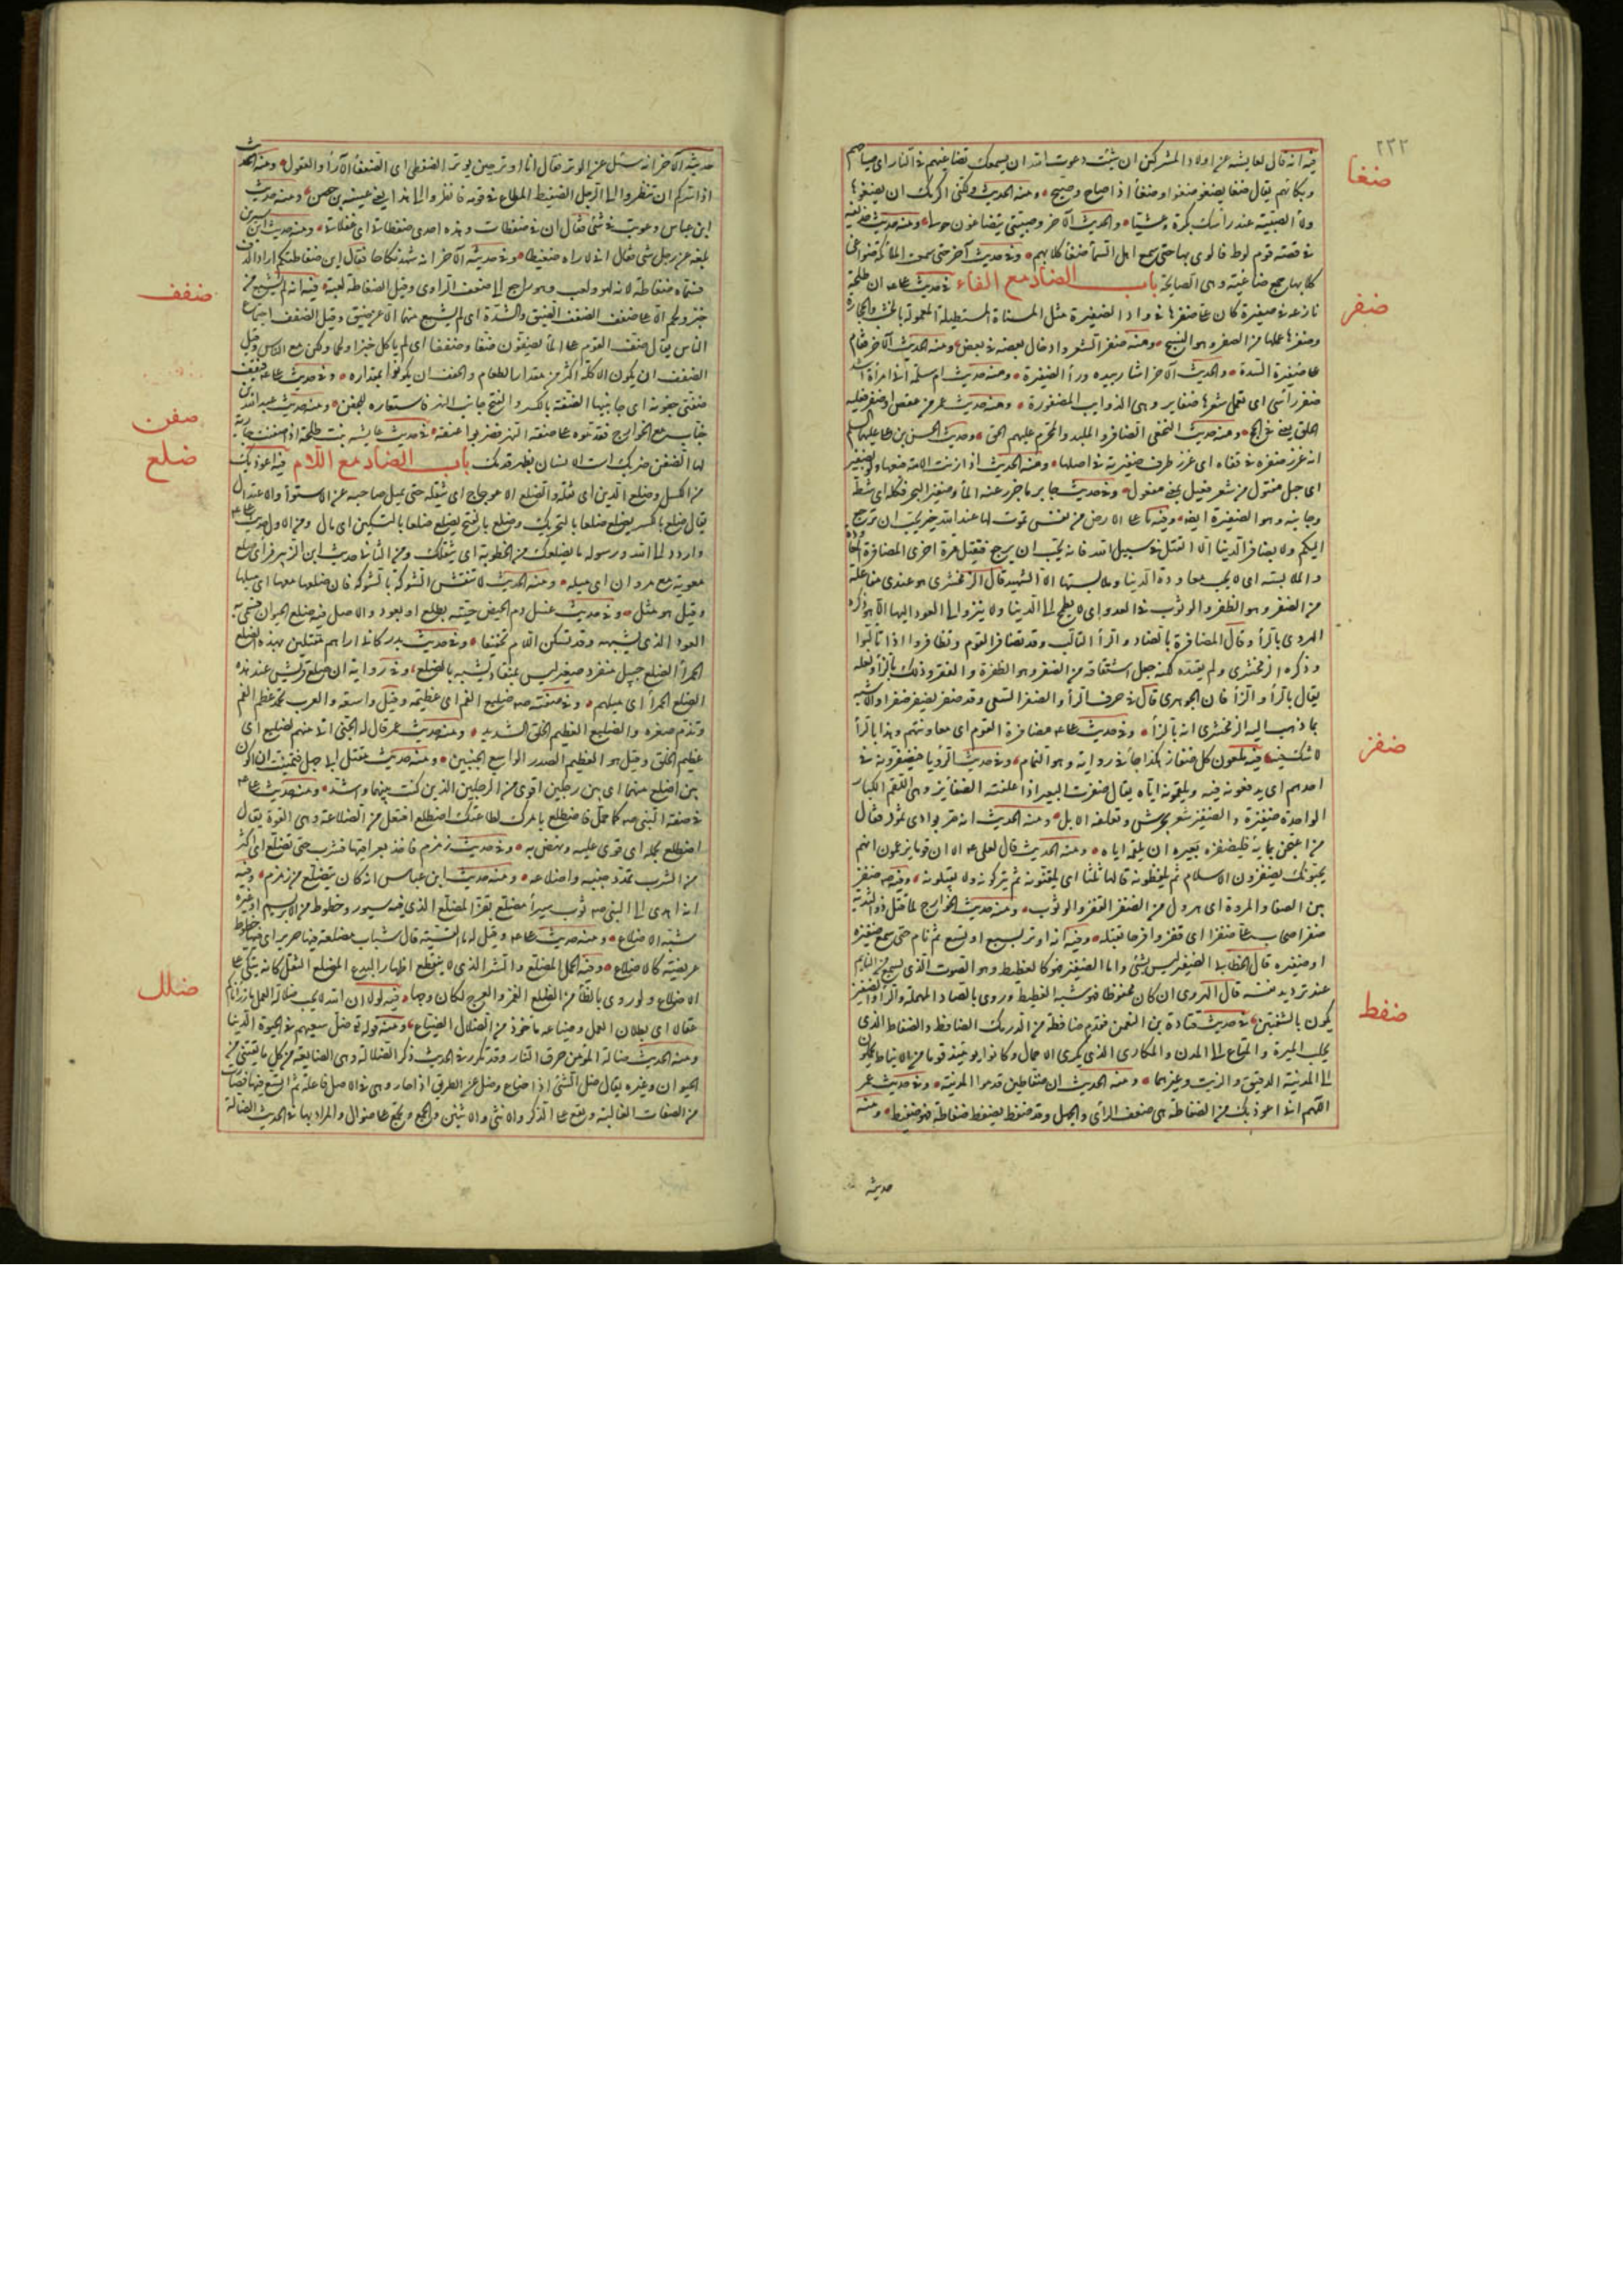 ٢٣٢
ضغا
فيه انه قال لعايشة عن اولاد المشركين ان شئت دعوت الله ان يسمعك تضاغيهم في النار اى صياحهم
وبكائهم يقال ضغا يضغو ضغوا وضغاء اذا صاح وضج ومنه الحديث ولكنى اكرمك ان يضغوا
ولا الصبية عند رأسك بكرة وعشيا والحديث الآخر وصبيتى يتضاغون حولى ومنه حديث حذيفة
في قصة قوم لوط فالوى بها حتى سمع اهل السماء ضغاء كلابهم وفي حديث آخر حتى سمعت الملائكة ضواغى
كلابها جمع ضاغية وهى الصايحة باب الضاد مع الفاء في حديث على ان طلحة
ضفر
نازعه في ضفيرة كان على ضفرها في واد الضفيرة مثل المسناة المستطيلة المعمولة بالخشب والحجارة
وضفرها عملها من الضفر وهو النسج ومنه ضفر الشعر وادخال بعضه في بعض ومنه الحديث الآخر فقام
على ضفيرة السدة والحديث الآخر اشار بيده وراء الضفيرة ومنه حديث ام سلمة انى امرأة اشد
ضفر رأسى اى تعمل شعرها ضفاير وهى الذوايب المضفورة ومنه حديث عمر من عقص او ضفر فعليه
الحلق يعنى في الحج ومنه حديث النخعى الضافر والملبد والمجمر عليهم الحلق وحديث الحسن بن على عليهما السلم
انه غرز ضفره في قفاه اى غرز طرف ضفيرته في اصلها ومنه الحديث اذا زنت الامة فبعها ولو بضفير
اى حبل مفتول من شعر فعيل بمعنى مفعول وفي حديث جابر ما جزر عنه الماء وضفير البحر فكله اى شطه
وجانبه وهو الضفيرة ايضا وفيه ما على الارض من نفس تموت لها عند الله خير تحب ان ترجع
اليكم ولا يضافر الدنيا الا القتيل في سبيل الله فانه يحب ان يرجع فيقتل مرة اخرى المضافرة المعاودة
والملابسة اى لا يحب معاودة الدنيا وملابستها الا الشهيد قال الزمخشرى هو عندى مفاعلة
من الضفر وهو الظفر والوثوب في العدو اى لا يطمح الى الدنيا ولا ينزو الى العود اليها الا هو ذكره
الهروى بالراء وقال المضافرة بالضاد والراء التالب وقد تضافر القوم وتظافروا اذا تالبوا
وذكره الزمخشرى ولم يقيده لكنه جعل اشتقاقه من الضفر وهو الطفرة والقفز وذلك بالزاء ولعله
يقال بالراء والزاء فان الجوهرى قال في حرف الراء والضفر السعى وقد ضفر يضفر ضفرا والاشبه
بما ذهب اليه الزمخشرى انه بالزاء وفي حديث على مضافرة القوم اى معاونتهم وهذا بالراء
ضفز
لا شك فيه فيه ملعون كل ضفاز هكذا جاء في رواية وهو النمام وفي حديث الرؤيا فيضفزونه في
احدهم اى يدفعونه فيه ويلقمونه اياه يقال ضفزت البعير اذا علفته الضفائز وهى اللقم الكبار
الواحدة ضفيزة والضفيز شعير يجرش وتعلفه الابل ومنه الحديث انه مر بوادى ثمود فقال
من اعتجن بمائه فليضفزه بعيره اى يلقمه اياه ومنه الحديث قال لعلى الا ان قوما يزعمون انهم
يحبونك يضفزون الاسلام ثم يلفظونه قالها ثلثا اى يلقنونه ثم يتركونه ولا يقبلونه وفيه ضفز
بين الصفا والمروة اى هرول من الضفز القفز والوثوب ومنه حديث الخوارج لما قتل ذو الثدية
ضفز اصحاب على ضفزا اى قفزوا فرحا بقتله وفيه انه اوتر بسبع او تسع ثم نام حتى سمع ضفيزه
او ضفيره قال الخطابى الضفير ليس بشئ واما الضفيز فهو كالغطيط وهو الصوت الذى يسمع من النايم
عند ترديد نفسه قال الهروى ان كان محفوظا فهو شبه الغطيط وروى بالصاد المهملة والراء والصفير
ضفط
يكون بالشفتين في حديث قتادة بن النعمن فقدم ضافطة من الدرمك الضافط والضفاط الذى
يجلب الميرة والمتاع الى المدن والمكارى الذى يكرى الاحمال وكانوا يومئذ قوما من الانباط يحملون
الى المدينة الدقيق والزيت وغيرهما ومنه الحديث ان ضفاطين قدموا المدينة وفي حديث عمر
اللهم انى اعوذ بك من الضفاطة هى ضعف الرأى والجهل وقد ضفط يضفط ضفاطة فهو ضفيط ومنه
حديثه
حديثه الآخر انه سئل عن الوتر فقال انا اوتر حين يوتر الضفطى اى الضعفاء الآراء والعقول ومنه الحديث
اذا سركم ان تنظروا الى الرجل الضفيط المطاع في قومه فانظروا الى هذا يعنى عيينة بن حصن ومنه حديث
ابن عباس وعوتب في شئ فقال ان في ضفطات وهذه احدى ضفطاتى اى غفلاتى ومنه حديث ابن سيرين
بلغه عن رجل شئ فقال انى لاراه ضفيطا وفي حديثه الآخر انه شهد نكاحا فقال اين ضفاطتكم اراد الدف
فسماه ضفاطة لانه لهو ولعب وهو راجع الى ضعف الراى وقيل الضفاطة لعبة فيه انه لم يشبع من
ضفف
خبز ولحم الا على ضفف الضفف الضيق والشدة اى لم يشبع منهما الا عن ضيق وقيل الضفف اجتماع
الناس يقال ضف القوم على الماء يضفون ضفا وضففا اى لم ياكل خبزا ولحما وحده ولكن مع الناس وقيل
الضفف ان يكون الاكلة اكثر من مقدار الطعام والحفف ان يكونوا بمقداره وفي حديث على فيقف
ضفتى جفونه اى جانبيها الضفة بالكسر والفتح جانب النهر فاستعاره للجفن ومنه حديث عبد الله بن
ضفن
خباب مع الخوارج فقدموه على ضفة النهر فضربوا عنقه في حديث عايشة بنت طلحة انها ضفنت جارية
لها الضفن ضربك است الانسان بظهر قدمك باب الضاد مع اللام فيه اعوذ بك
ضلع
من الكسل وضلع الدين اى ثقله والضلع الاعوجاج اى ثقله حتى يميل صاحبه عن الاستواء والاعتدال
يقال ضلع بالكسر يضلع ضلعا بالتحريك وضلع بالفتح يضلع ضلعا بالتسكين اى مال ومن الاول حديث على
واردد الى الله ورسوله ما يضلعك من الخطوب اى يثقلك ومن الثانى حديث ابن الزبير فرأى ضلع
معوية مع مروان اى ميله ومنه الحديث لا تنقش الشوكة بالشوكة فان ضلعها معها اى ميلها
وقيل هو مثل وفي حديث غسل دم الحيض حتيه بضلع اى بعود والاصل فيه ضلع الحيوان فسمى به
العود الذى يشبهه وقد تسكن اللام تخفيفا وفي حديث بدر كانى اراهم مقتلين بهذه الضلع
الحمراء الضلع جبيل منفرد صغير ليس بمنقاد يشبه بالضلع وفي رواية ان ضلع قريش عند هذه
الضلع الحمراء اى ميلهم وفي صفته ضليع الفم اى عظيمه وقيل واسعه والعرب تحمد عظم الفم
وتذم صغره والضليع العظيم الخلق الشديد ومنه حديث عمر قال له الجنى انى منهم لضليع اى
عظيم الخلق وقيل هو العظيم الصدر الواسع الجنبين ومنه حديث مقتل ابى جهل فتمنيت ان اكون
بين اضلع منهما اى بين رجلين اقوى من الرجلين الذين كنت بينهما واشد ومنه حديث على
في صفة النبى كما حمل فاضطلع بامرك لطاعتك اضطلع افتعل من الضلاعة وهى القوة يقال
اضطلع بحمله اى قوى عليه ونهض به وفي حديث زمزم فاخذ بعراقيها فشرب حتى تضلع اى اكثر
من الشرب حتى تمدد جنبه واضلاعه ومنه حديث ابن عباس انه كان يتضلع من زمزم وفيه
انه اهدى الى النبى ثوب سيراء مضلع بقز المضلع الذى فيه سيور وخطوط من الابريسم او غيره
شبه الاضلاع ومنه حديث على وقيل له ما القسية قال ثياب مضلعة فيها حرير اى فيها خطوط
عريضة كالاضلاع وفيه الحمل المضلع والشر الذى لا ينقطع اظهار البدع المضلع المثقل كانه يتكى على
الاضلاع ولو روى بالظاء من الظلع الغمز والعرج لكان وجها فيه لولا ان الله لا يحب ضلالة العمل ما رزأناكم
ضلل
عقالا اى بطلان العمل وضياعه ماخوذ من الضلال الضياع ومنه قوله تع ضل سعيهم في الحيوة الدنيا
ومنه الحديث ضالة المؤمن حرق النار وقد تكرر في الحديث ذكر الضالة وهى الضايعة من كل ما يقتنى من
الحيوان وغيره يقال ضل الشئ اذا ضاع وضل عن الطريق اذا حار وهى في الاصل فاعلة ثم اتسع فيها فصارت
من الصفات الغالبة ويقع على الذكر والانثى والاثنين والجمع وتجمع على ضوال والمراد بها في الحديث الضالة